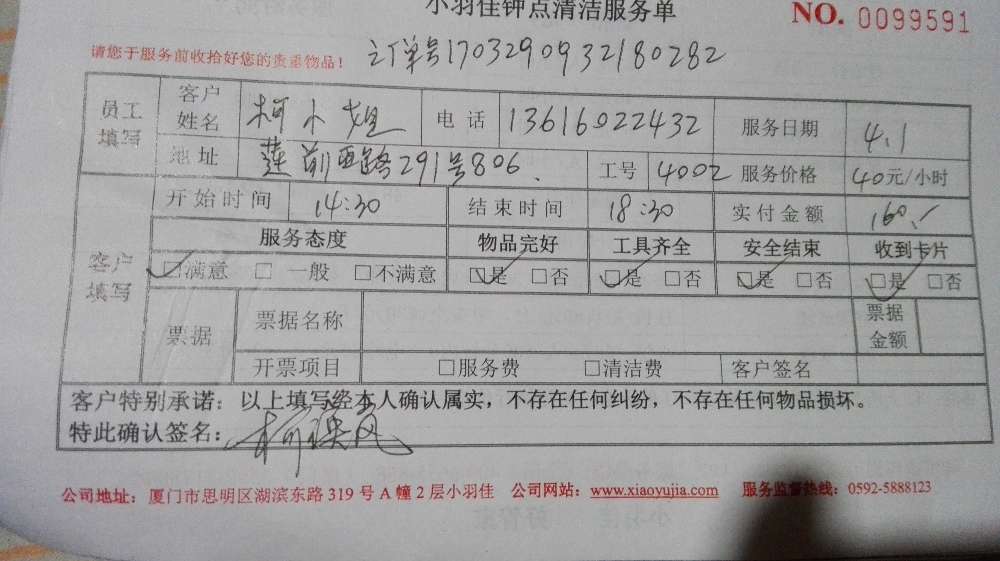 小羽佳钟点清洁服务单
NO. 0099591
请您于服务前收拾好您的贵重物品！
订单号1703290932180282
员工填写 客户姓名 柯小姐 电话 13616022432 服务日期 4.1
地址 莲前西路291号806、 工号 4002 服务价格 40元/小时
客户填写 开始时间 14:30 结束时间 18:30 实付金额 160.-
服务态度 物品完好 工具齐全 安全结束 收到卡片
☑满意 □ 一般 □不满意 ☑是 □否 ☑是 □否 ☑是 □否 ☑是 □否
票据 票据名称 票据金额
开票项目 □服务费 □清洁费 客户签名
客户特别承诺：以上填写经本人确认属实，不存在任何纠纷，不存在任何物品损坏。
特此确认签名：柯
公司地址：厦门市思明区湖滨东路 319 号 A 幢 2 层小羽佳 公司网站：www.xiaoyujia.com 服务监督热线：0592-5888123